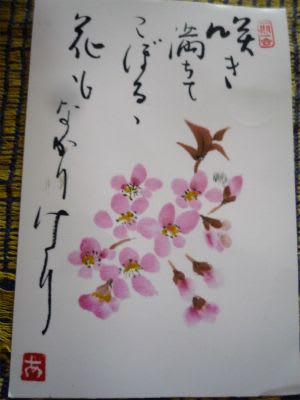 咲き
満ちて
こぼるゝ
花もなかりけり
あ